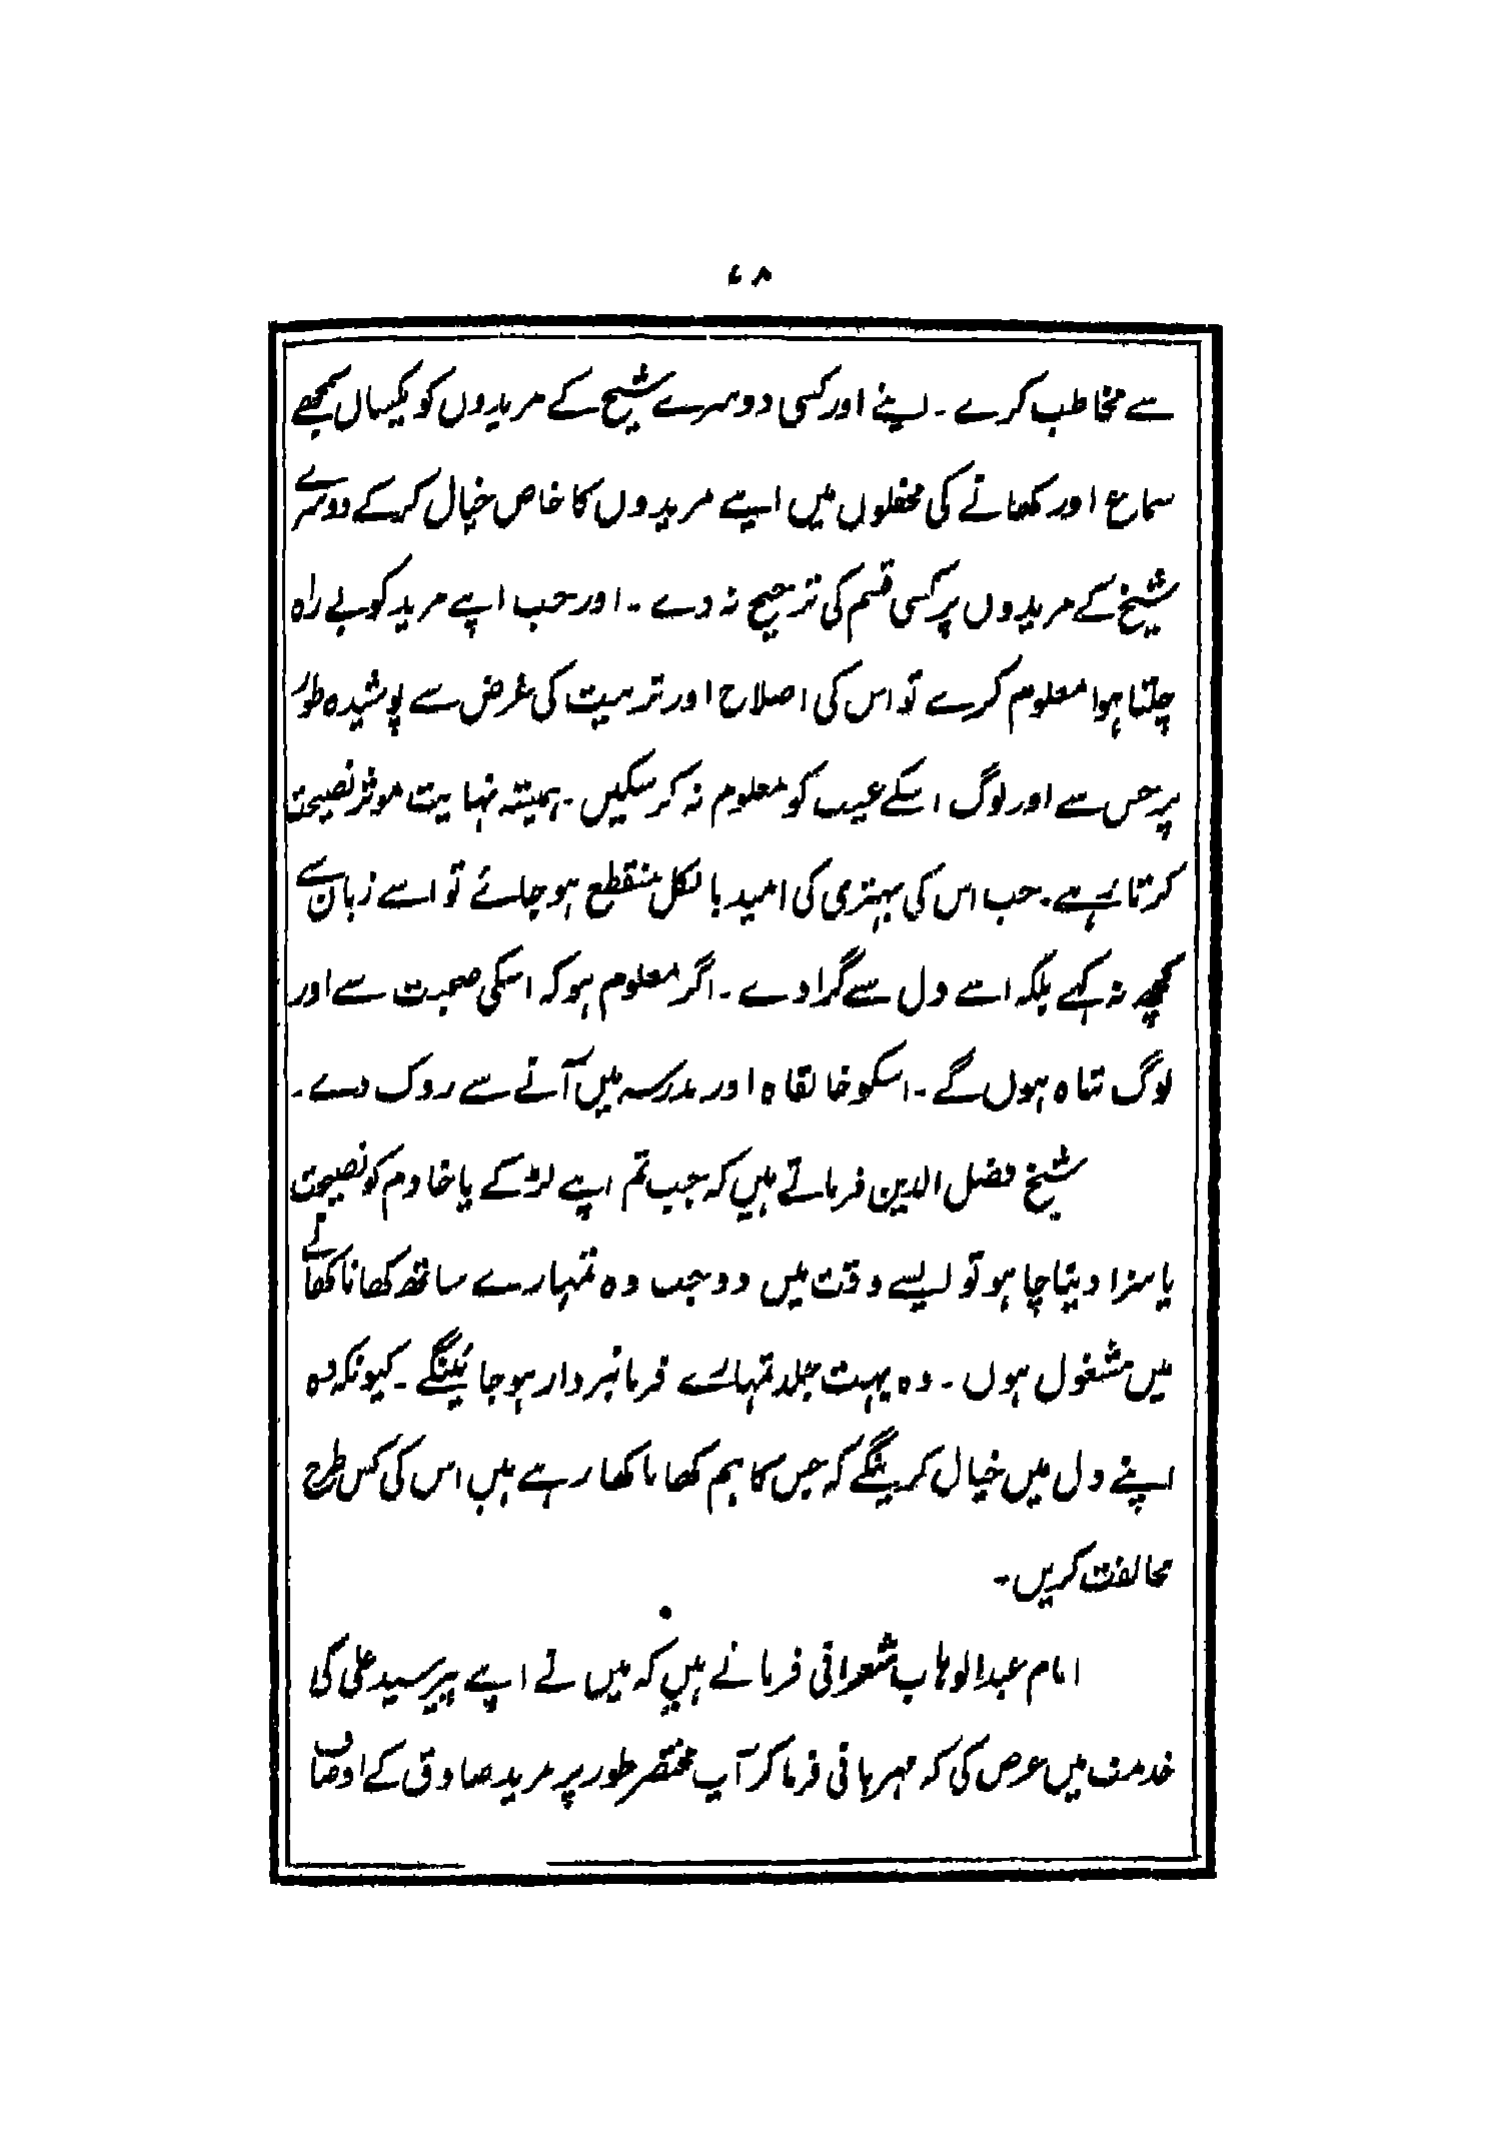 ۷۸
سے مخاطب کرے ۔ اپنے اور کسی دوسرے شیخ کے مریدوں کو یکساں سمجھے
سماع اور کھانے کی محفلوں میں اپنے مریدوں کا خاص خیال کرکے دوسرے
شیخ کے مریدوں پر کسی قسم کی ترجیح نہ دے ۔ اور جب اپنے مرید کو بے راہ
چلتا ہوا معلوم کرے تو اس کی اصلاح اور تربیت کی غرض سے پوشیدہ طور
پر جس سے اور لوگ اسکے عیب کو معلوم نہ کر سکیں ۔ ہمیشہ نہایت موثر نصیحت
کرتا رہے ۔ جب اس کی بہتری کی امید بالکل منقطع ہو جائے تو اسے زبان سے
کچھ نہ کہے بلکہ اسے دل سے گرا دے ۔ اگر معلوم ہو کہ اسکی صحبت سے اور
لوگ تباہ ہوں گے ۔ اسکو خانقاہ اور مدرسہ میں آنے سے روک دے ۔
شیخ فضل الدین فرماتے ہیں کہ جب تم اپنے لڑکے یا خادم کو نصیحت
یا سزا دینا چاہو تو ایسے وقت میں دو جب وہ تمہارے ساتھ کھانا کھانے
میں مشغول ہوں ۔ وہ بہت جلد تمہارے فرمانبردار ہو جائینگے ۔ کیونکہ وہ
اپنے دل میں خیال کرینگے کہ جس کا ہم کھانا کھا رہے ہیں اس کی کس طرح
مخالفت کریں ۔
امام عبدالوہاب شعرانی فرماتے ہیں کہ میں نے اپنے پیر سید علی کی
خدمت میں عرض کی کہ مہربانی فرما کر آپ مختصر طور پر مرید صادق کے اوصاف